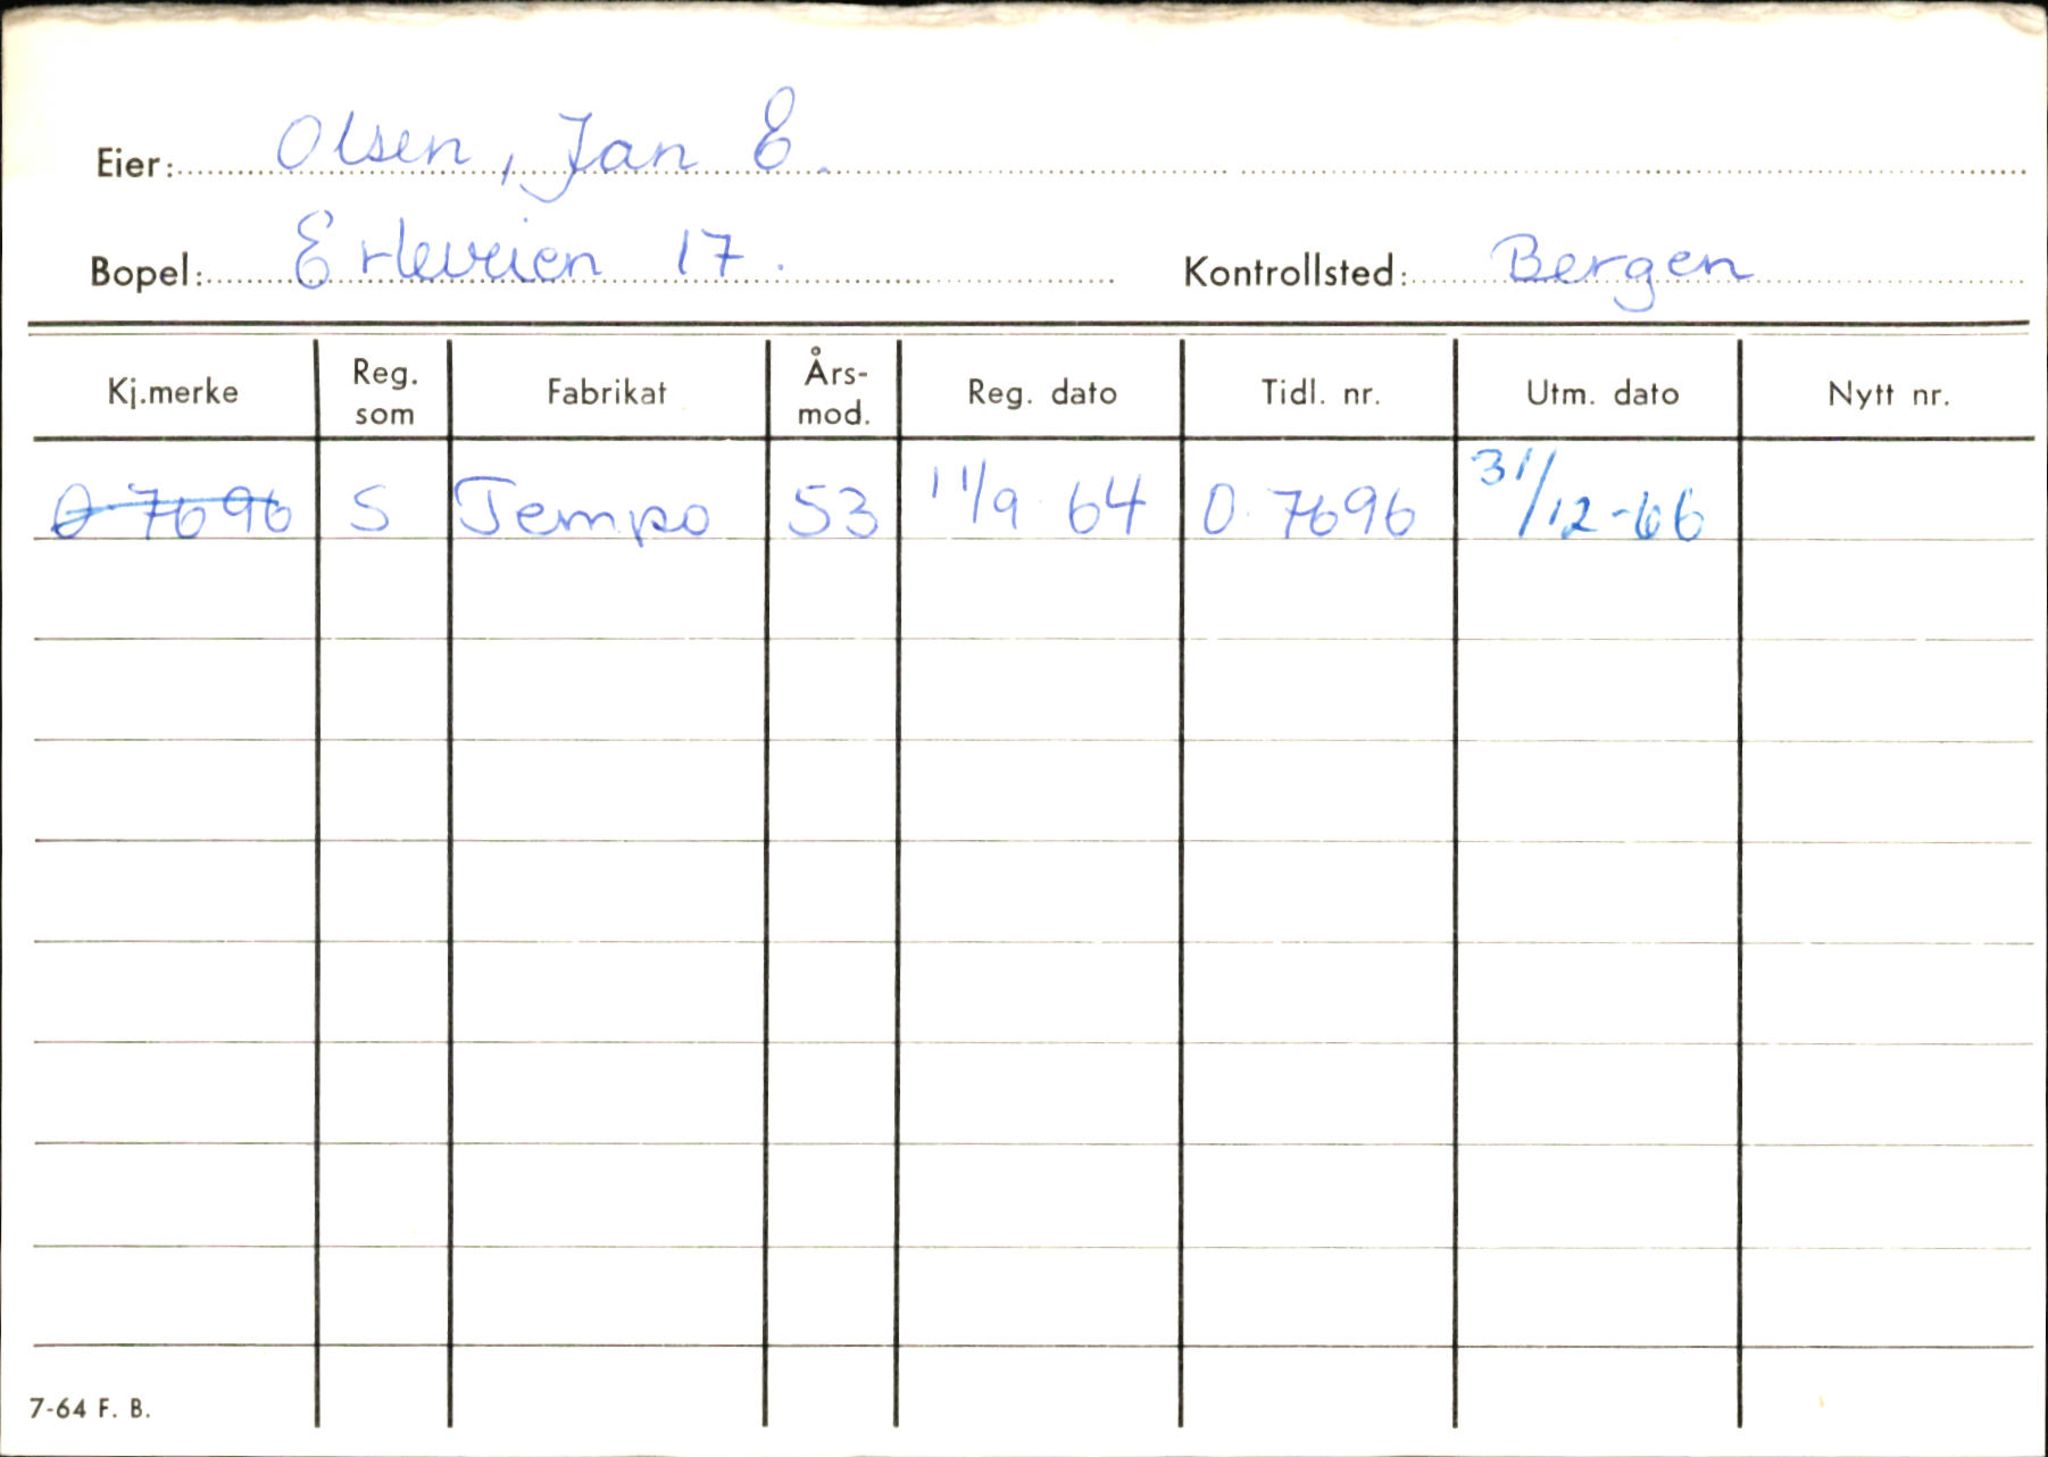 Eier: Olsen, Jan E.
Bopel: Erleveien 17. Kontrollsted: Bergen
Kj.merke Reg. som Fabrikat Års-mod. Reg. dato Tidl. nr. Utm. dato Nytt nr.
O 7696 S Tempo 53 11/9 64 O 7696 31/12-66
7-64 F. B.